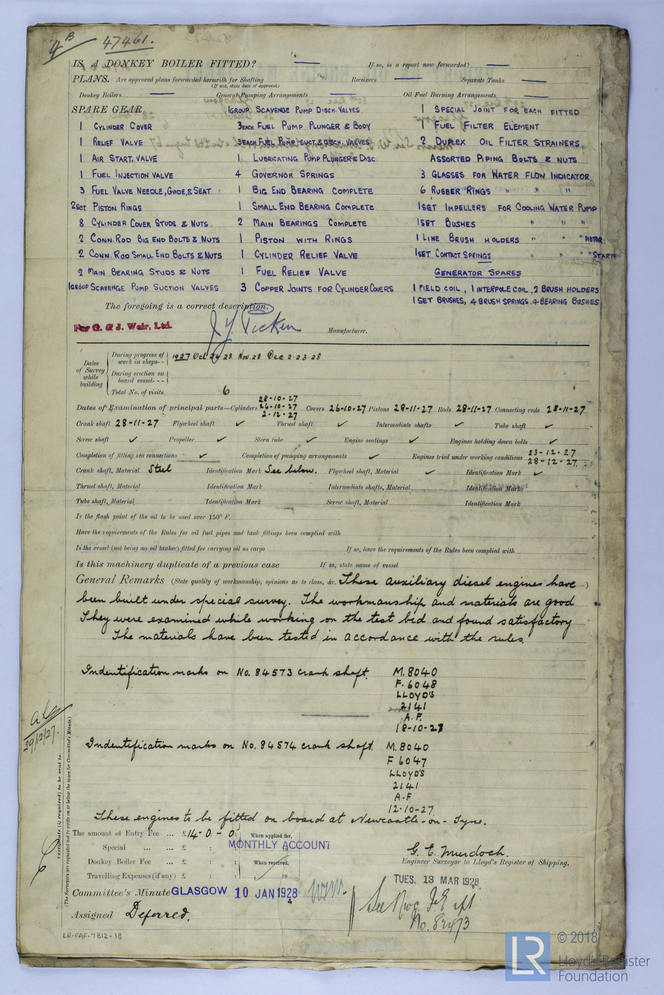 4B 47461.
IS A DONKEY BOILER FITTED? — If so, is a report now forwarded? —
PLANS. Are approved plans forwarded herewith for Shafting — Receivers — Separate Tanks —
(If not, state date of approval)
Donkey Boilers — General Pumping Arrangements — Oil Fuel Burning Arrangements
SPARE GEAR
1 CYLINDER COVER
1 RELIEF VALVE
1 AIR START. VALVE
1 FUEL INJECTION VALVE
3 FUEL VALVE NEEDLE, GUIDE, & SEAT
2 SET PISTON RINGS
8 CYLINDER COVER STUDS & NUTS
2 CONN. ROD BIG END BOLTS & NUTS
2 CONN. ROD SMALL END BOLTS & NUTS
2 MAIN BEARING STUDS & NUTS
1 GROUP SCAVENGE PUMP SUCTION VALVES
1 GROUP. SCAVENGE PUMP DISCH. VALVES
3 EACH FUEL PUMP PLUNGER & BODY
3 EACH FUEL PUMP SUCT. & DISCH. VALVES
1 LUBRICATING PUMP PLUNGER & DISC.
4 GOVERNOR SPRINGS
1 BIG END BEARING COMPLETE
1 SMALL END BEARING COMPLETE
2 MAIN BEARINGS COMPLETE
1 PISTON WITH RINGS
1 CYLINDER RELIEF VALVE
1 FUEL RELIEF VALVE
3 COPPER JOINTS FOR CYLINDER COVERS
1 SPECIAL JOINT FOR EACH FITTED
1 FUEL FILTER ELEMENT
2 DUPLEX OIL FILTER STRAINERS
ASSORTED PIPING BOLTS & NUTS
3 GLASSES FOR WATER FLOW INDICATOR
6 RUBBER RINGS " " "
1 SET IMPELLERS FOR COOLING WATER PUMP
1 SET BUSHES " " "
1 LINE BRUSH HOLDERS " " " MOTOR
1 SET CONTACT SPRINGS " " " STARTER
GENERATOR SPARES
1 FIELD COIL, 1 INTERPOLE COIL, 2 BRUSH HOLDERS
1 SET BRUSHES, 4 BRUSH SPRINGS. 4 BEARING BUSHES
The foregoing is a correct description.
For G. & J. Weir, Ltd. J Y Picken Manufacturer.
Dates of Survey while building
During progress of work in shops - - 1927 Oct 26 28 Nov 28 Dec 2. 23 28
During erection on board vessel - - -
Total No. of visits 6
Dates of Examination of principal parts—Cylinders 28-10-27 26-10-27 2-12-27 Covers 26-10-27 Pistons 28-11-27 Rods 28-11-27 Connecting rods 28-11-27
Crank shaft 28-11-27 Flywheel shaft ✓ Thrust shaft ✓ Intermediate shafts ✓ Tube shaft ✓
Screw shaft ✓ Propeller ✓ Stern tube ✓ Engine seatings ✓ Engines holding down bolts ✓
Completion of fitting sea connections ✓ Completion of pumping arrangements ✓ Engines tried under working conditions 23-12-27 28-12-27
Crank shaft, Material Steel Identification Mark See below. Flywheel shaft, Material ✓ Identification Mark ✓
Thrust shaft, Material Identification Mark Intermediate shafts, Material Identification Marks
Tube shaft, Material Identification Mark Screw shaft, Material Identification Mark
Is the flash point of the oil to be used over 150° F.
Have the requirements of the Rules for oil fuel pipes and tank fittings been complied with
Is the vessel (not being an oil tanker) fitted for carrying oil as cargo If so, have the requirements of the Rules been complied with
Is this machinery duplicate of a previous case If so, state name of vessel
General Remarks (State quality of workmanship, opinions as to class, &c. These auxiliary diesel engines have
been built under special survey. The workmanship and materials are good
They were examined while working on the test bed and found satisfactory
The materials have been tested in accordance with the rules.
Indentification marks on No. 84573 crank shaft. M. 8040
F. 6048
LLOYD'S
2141
A.F.
18-10-27
Indentification marks on No. 84574 crank shaft. M. 8040
F 6047
LLOYD'S
2141
A.F
12-10-27
29/12/27.
These engines to be fitted on board at Newcastle-on-Tyne.
The amount of Entry Fee ... £ 14-0-0 When applied for,
Special ... £ : : MONTHLY ACCOUNT
Donkey Boiler Fee ... £ : : When received,
Travelling Expenses (if any) £ : :
G. E. Murdoch.
Engineer Surveyor to Lloyd's Register of Shipping.
Committee's Minute GLASGOW 10 JAN 1928
TUES. 13 MAR 1928
Assigned Deferred.
No. 82473
LR-FAF-7812-38
LR © 2018
Lloyd's Register
Foundation